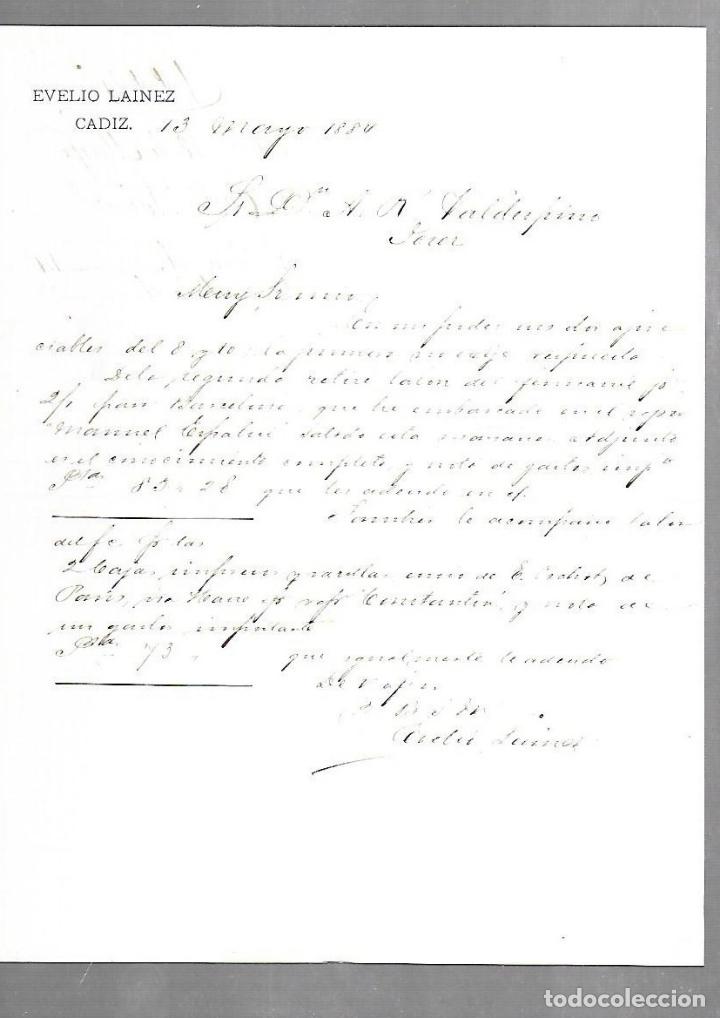 EVELIO LAINEZ
CADIZ. 13 Mayo 1884
Sr. Dn A. R. Valdespino
Jerez
Muy Sr. mio,
En mi poder sus dos apre
ciables del 8 y 10: la primera no exije respuesta
De la segunda retire talon del
2/ para Barcelona que he embarcado en el vapor
"Manuel Espaliu" salido esta mañana. adjunto
es el conocimiento completo y nota de gastos impte
Ptas 83 " 28 que les adeudo en c/.
Tambien le acompaño talon
del fc. p las
2 Cajas y varillas de E. de
Paris, via Havre vapr "Constantin" y nota de
mis gastos importante
Ptas 73 " que igualmente le adeudo
De V afmo
S S
Evelio Lainez
todocoleccion